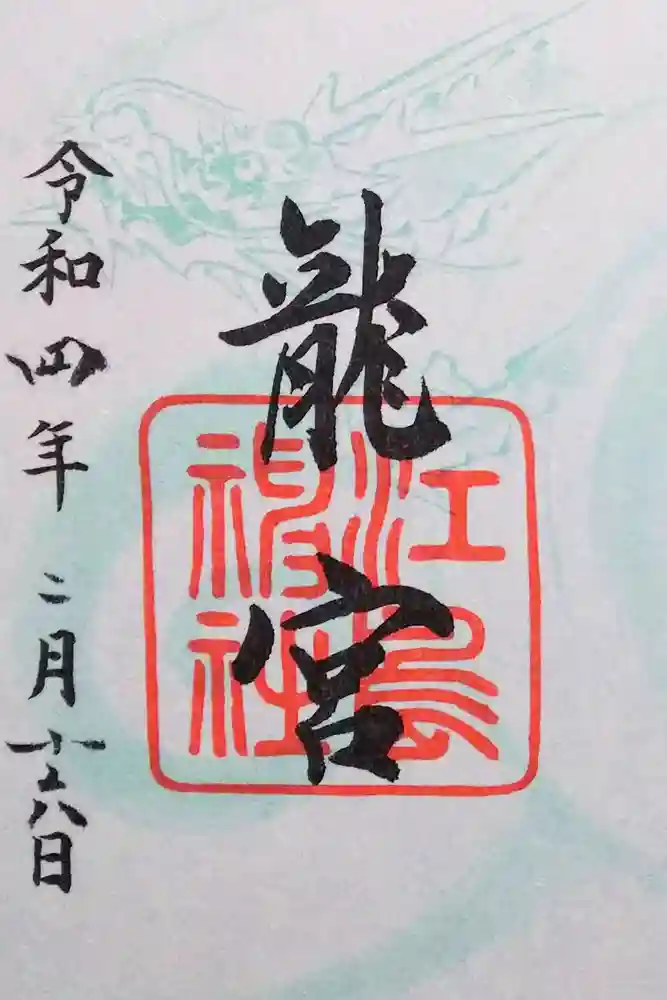 龍宮
江島
神社
令和四年二月十六日